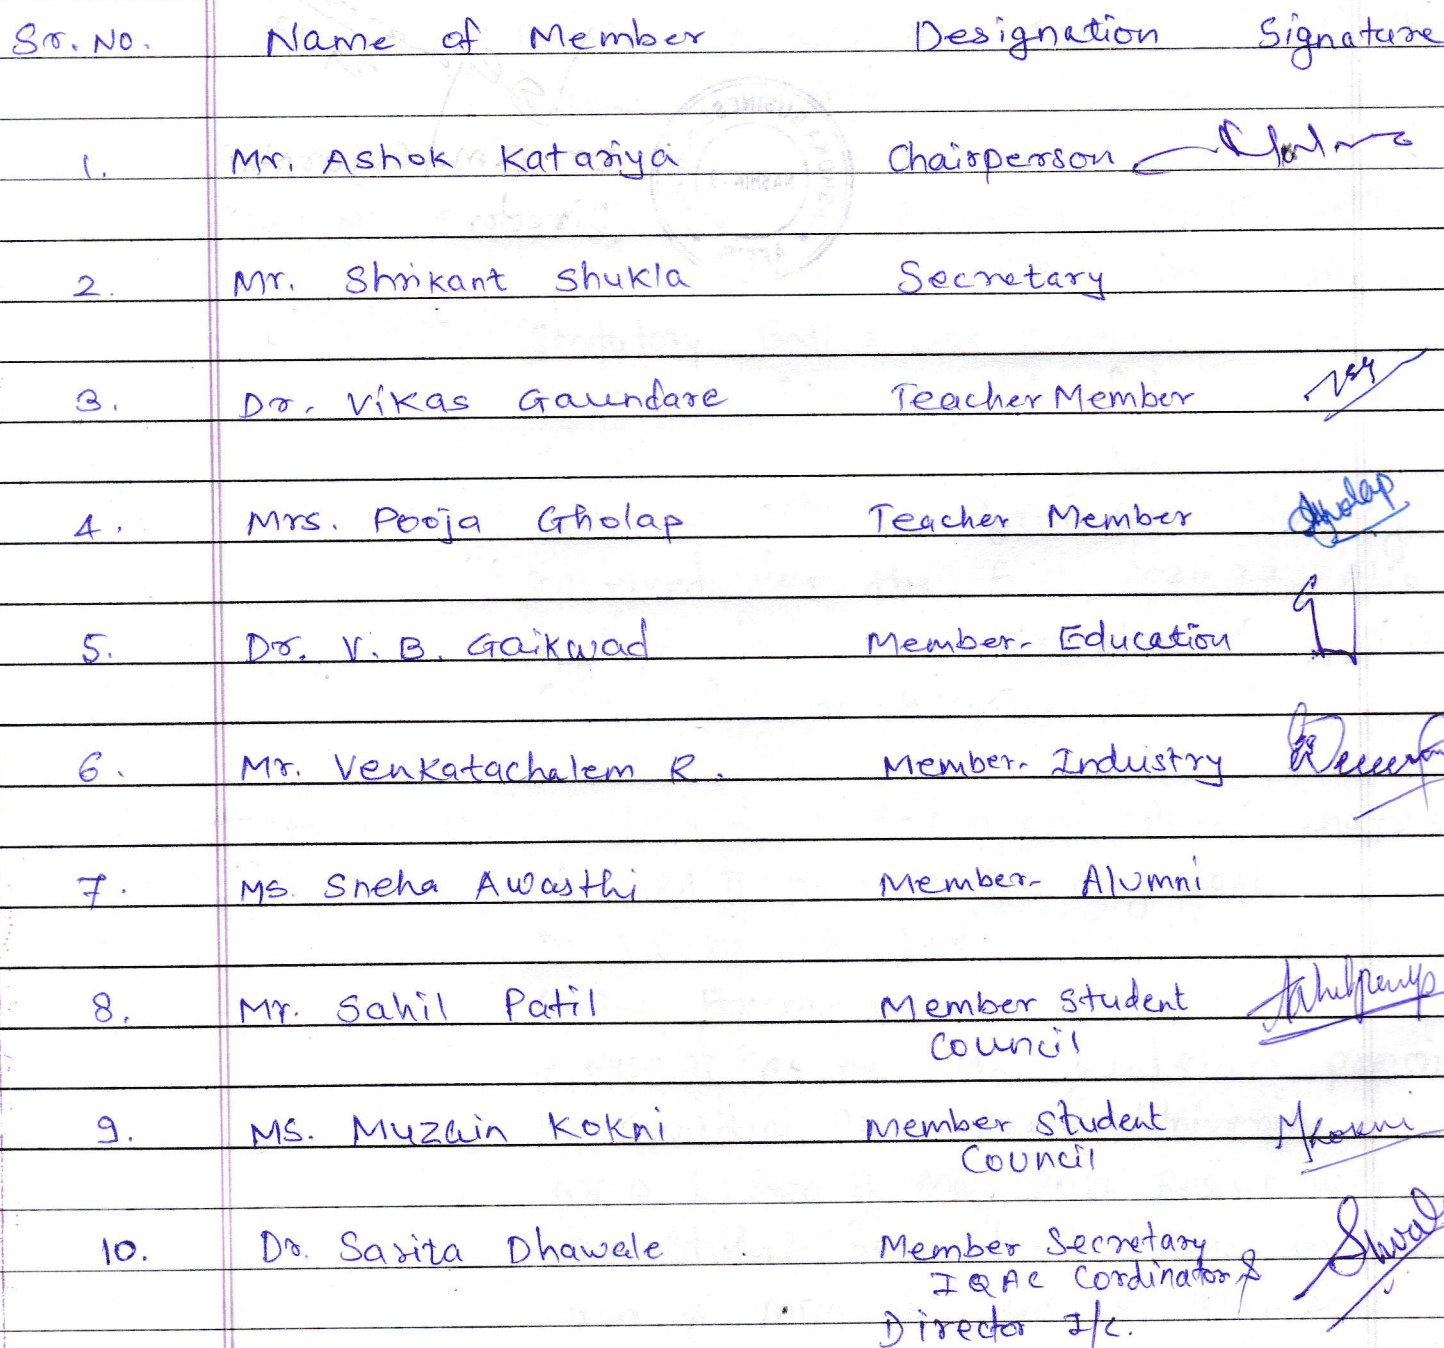 Sr. No. Name of Member Designation Signature
1. Mr. Ashok Katariya Chairperson
2. Mr. Shrikant Shukla Secretary
3. Dr. Vikas Gaundare Teacher Member
4. Mrs. Pooja Gholap Teacher Member Gholap
5. Dr. V. B. Gaikwad Member- Education
6. Mr. Venkatachalem R. Member- Industry
7. Ms. Sneha Awasthi Member- Alumni
8. Mr. Sahil Patil Member Student
Council
9. Ms. Muzain Kokni Member Student MKokni
Council
10. Dr. Sarita Dhawale Member Secretary
IQAC Cordinator &
Director I/c.